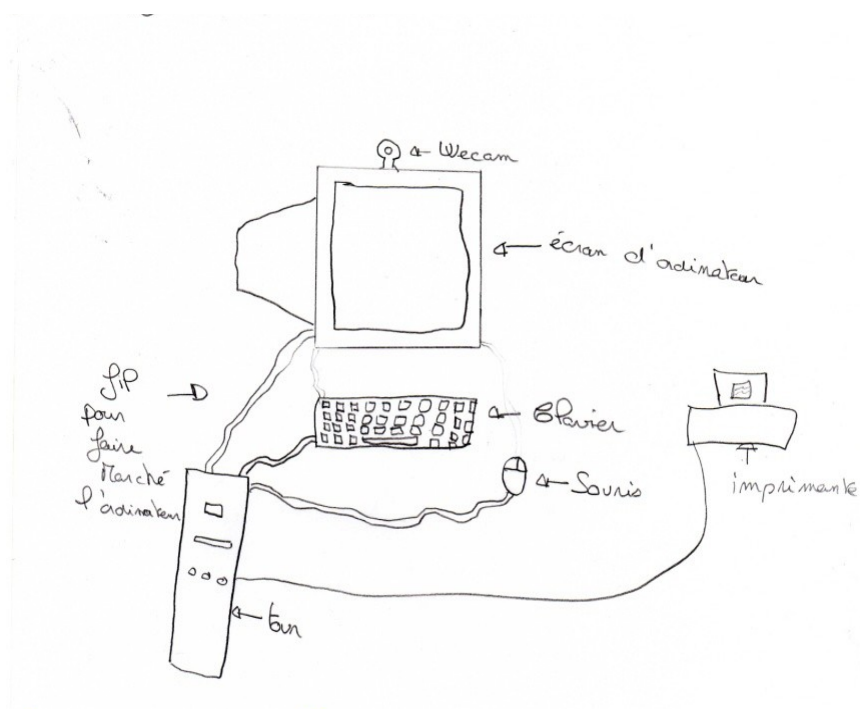 Wecam
écran d'ordinateur
fil
pour
faire
Marché
l'ordinateur
Clavier
Souris
imprimante
tour